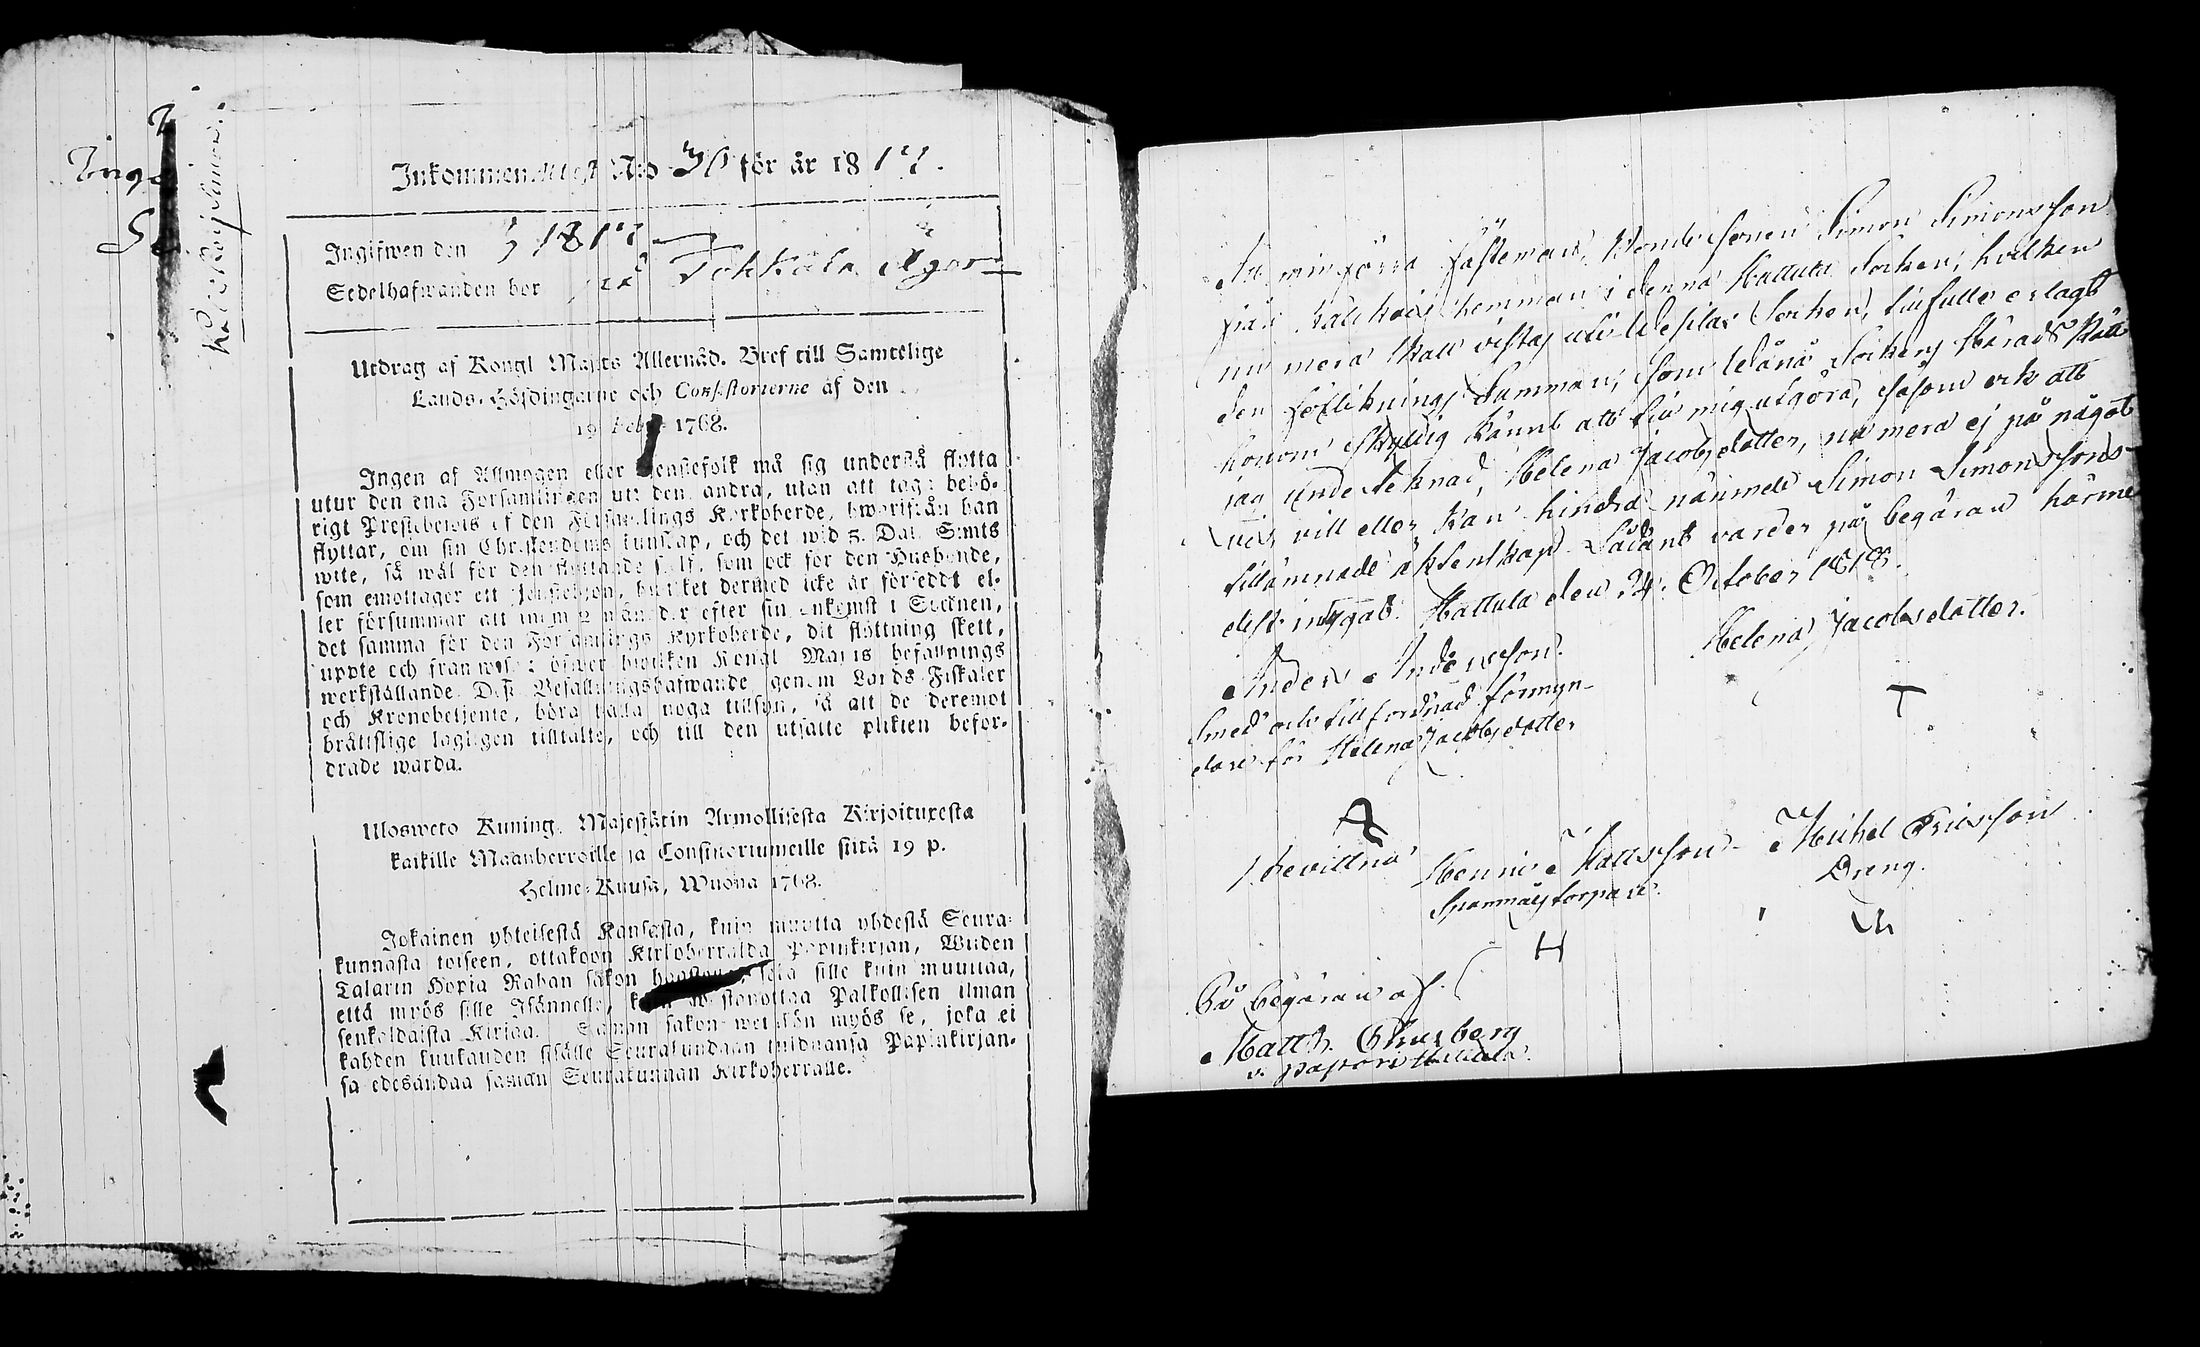 Inkommen attest N:o 30 för år 1817.
Ingifwen den 3/7 1817
Sedelhafwanden bor på Tohkala ägor
Utdrag af Kongl Maj:ts Allernåd. Bref till Samtelige
Lands-Höfdingarne och Consistorierne af den
19 Febr. 1768.
Ingen af Allmogen eller Tjenstefolk må sig understå flytta
utur den ena Församlingen uti den andra, utan att taga behö-
rigt Prestebewis af den Församlings Kyrkoherde, hwarifrån han
flyttar, om sin Christendoms kunskap, och det wid 5. Dal. S:mts
wite, så wäl för den flyttande sjelf, som ock för den Husbonde,
som emottager ett Tjenstehjon, hwilket dermed icke är försedt el-
ler försummar att inom 2 månader efter sin ankomst i Socknen,
det samma för den Församlings Kyrkoherde, dit flyttning skett,
uppte och framwisa: öfwer hwilken Kongl Maj:ts befallnings
werkställande Dess Befallningshafwande genom Lands-Fiskaler
och Kronobetjente, böra hålla noga tillsyn, så att de deremot
bråttslige lagligen tilltalte, och till den utsatte plikten befor-
drade warda.
Ulosweto Kuning. Majestätin Armollisesta Kirjoituxesta
kaikille Maanherroille ja Consistoriumeille siitä 19 p.
Helme-Kuusa, Wuona 1768.
Jokainen yhteisestä Kansasta, kuin muutta yhdestä Seura-
kunnasta toiseen, ottakoon Kirkoherralda Papinkirjan, Wiiden
Talarin Hopia Rahan sakon haastolla, sekä sille kuin muuttaa,
että myös sille Isännelle, kuin wastanottaa Palkollisen ilman
senkaldaista Kirjaa. Saman sakon wetäkön myös se, joka ei
kahden kuukauden sisälle Seurakundaan tulduansa Papinkirjan-
sa edesandaa saman Seurakunnan Kirkoherralle.
At min förra fästeman, Bondesonen Simon Simonsson
från Kalckois hemman i denna Hattula Socken, hvilken
nu mera skall vistas uti Wesilax Socken, tilfullo erlagt
den förliknings Summan, som Wånå Sockens Härads Rätt
honom skyldig känt att til mig utgöra, såsom och att
jag undertecknad, Helena Jacobsdotter, nu mera ej på något
vis vill eller kan hindra nämnde Simon Simonssons
tillämnade äktenskap. Sådant varder på begäran härme-
delst intygat. Hattula den 24. October 1818.
Helena Jacobsdotter.
Anders Andersson.
Smed och tillförordnad förmyn-
dare för Helena Jacobsdotter
Bevittna
Henric Mattsson
torpare.
Michel Ericsson
Dreng.
H
På begäran af
Matth.
v. pastor i Hattula.